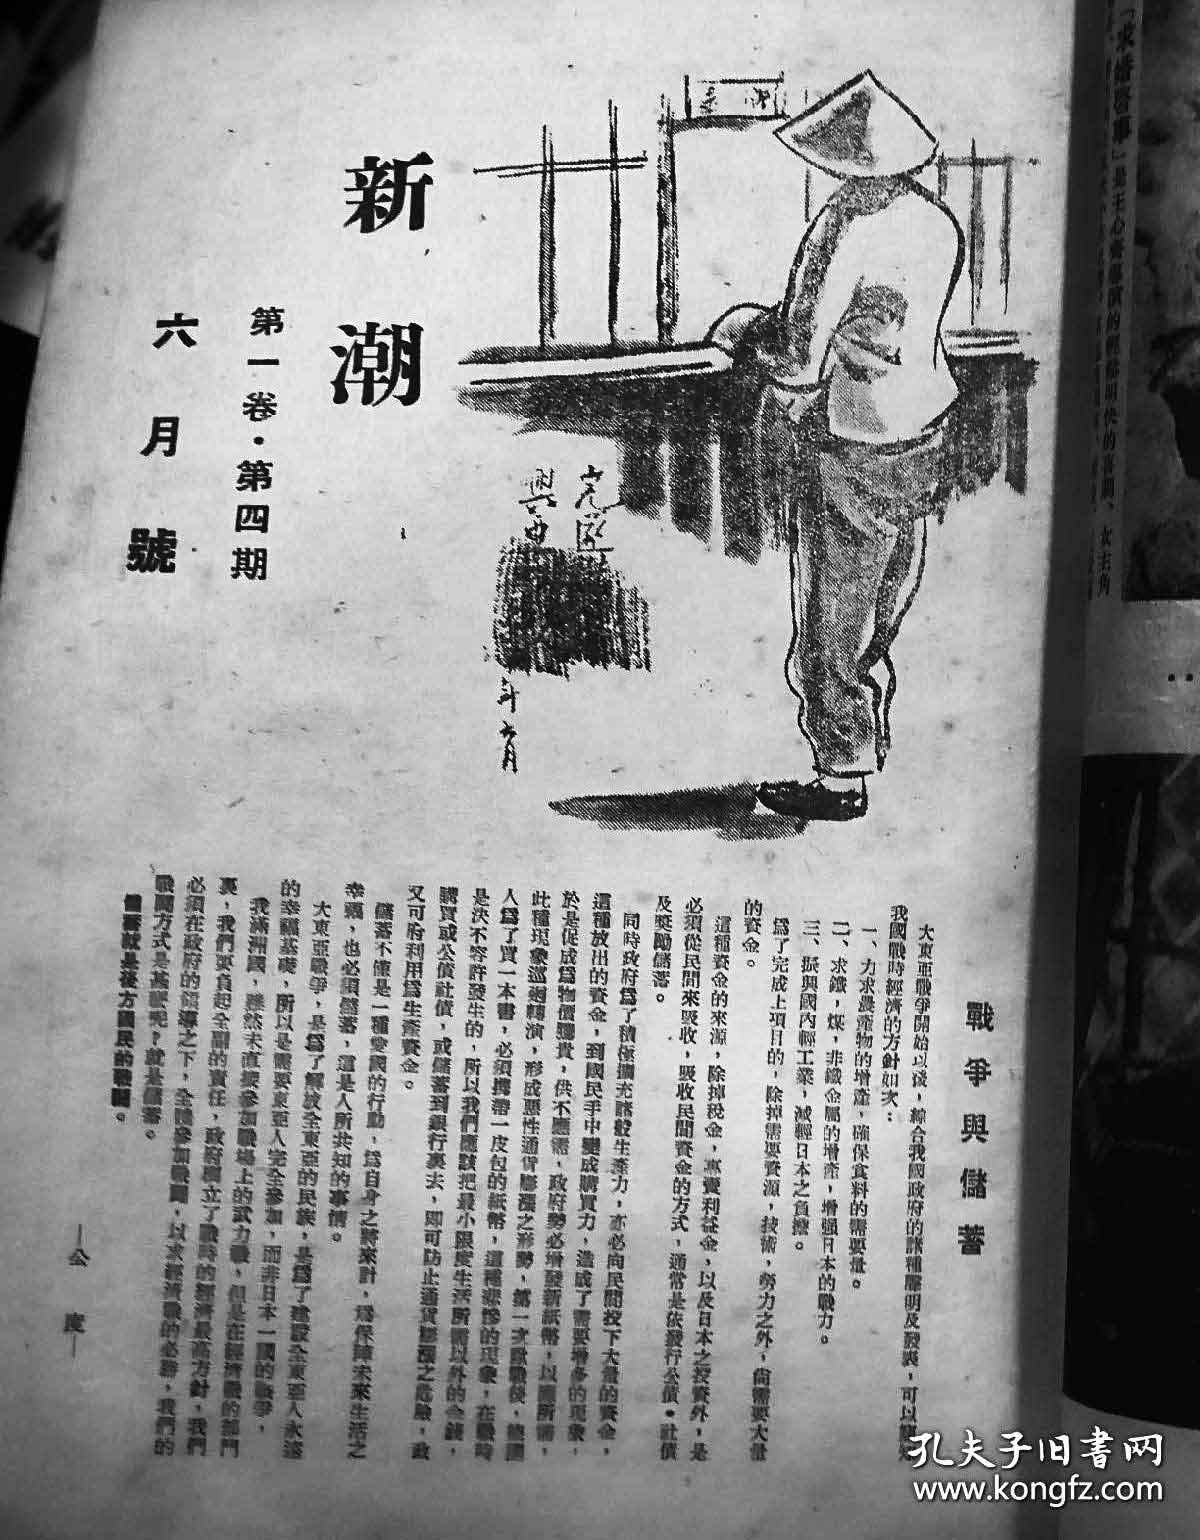 新潮
第一卷・第四期
六月號
年六月
戰爭與儲蓄
大東亞戰爭開始以後，綜合我國政府的諸種聲明及發表，可以
我國戰時經濟的方針如次：
一、力求農產物的增產，確保食料的需要量。
二、求鐵，煤，非鐵金屬的增產，增强日本的戰力。
三、振興國內輕工業，減輕日本之負擔。
爲了完成上項目的，除掉需要資源，技術，勞力之外，尙需要大量
的資金。
這種資金的來源，除掉稅金，專賣利益金，以及日本之投資外，是
必須從民間來吸收，吸收民間資金的方式，通常是依發行公債・社債
及獎勵儲蓄。
同時政府爲了積極擴充諸般生產力，亦必向民間投下大量的資金，
這種放出的資金，到國民手中變成購買力，造成了需要增多的現象，
於是促成爲物價騰貴，供不應需，政府勢必增發新紙幣，以應所需，
此種現象巡廻轉演，形成惡性通貨膨漲之形勢，第一次歐戰後，德國
人爲了買一本書，必須攜帶一皮包的紙幣，這種悲慘的現象，在戰時
是決不容許發生的，所以我們應該把最小限度生活所需以外的金錢，
購買或公債社債，或儲蓄到銀行裏去，卽可防止通貨膨漲之危險，政
又可府利用爲生產資金。
儲蓄不僅是一種愛國的行動，爲自身之將來計，爲保障未來生活之
幸福，也必須儲蓄，這是人所共知的事情。
大東亞戰爭，是爲了解放全東亞的民族，是爲了建設全東亞人永遠
的幸福基礎，所以是需要東亞人完全參加，而非日本一國的戰爭，
我滿洲國，雖然未直接參加戰場上的武力戰，但是在經濟戰的部門
裏，我們要負起全副的責任，政府樹立了戰時的經濟最高方針，我們
必須在政府的領導之下，全體參加戰鬪，以求經濟戰的必勝，我們的
戰鬪方式是甚麽呢？就是儲蓄。
儲蓄就是後方國民的戰鬪。
—公度—
「求婚啓事」是王心齋導演的輕鬆明快的喜劇、女主角
孔夫子旧书网
www.kongfz.com